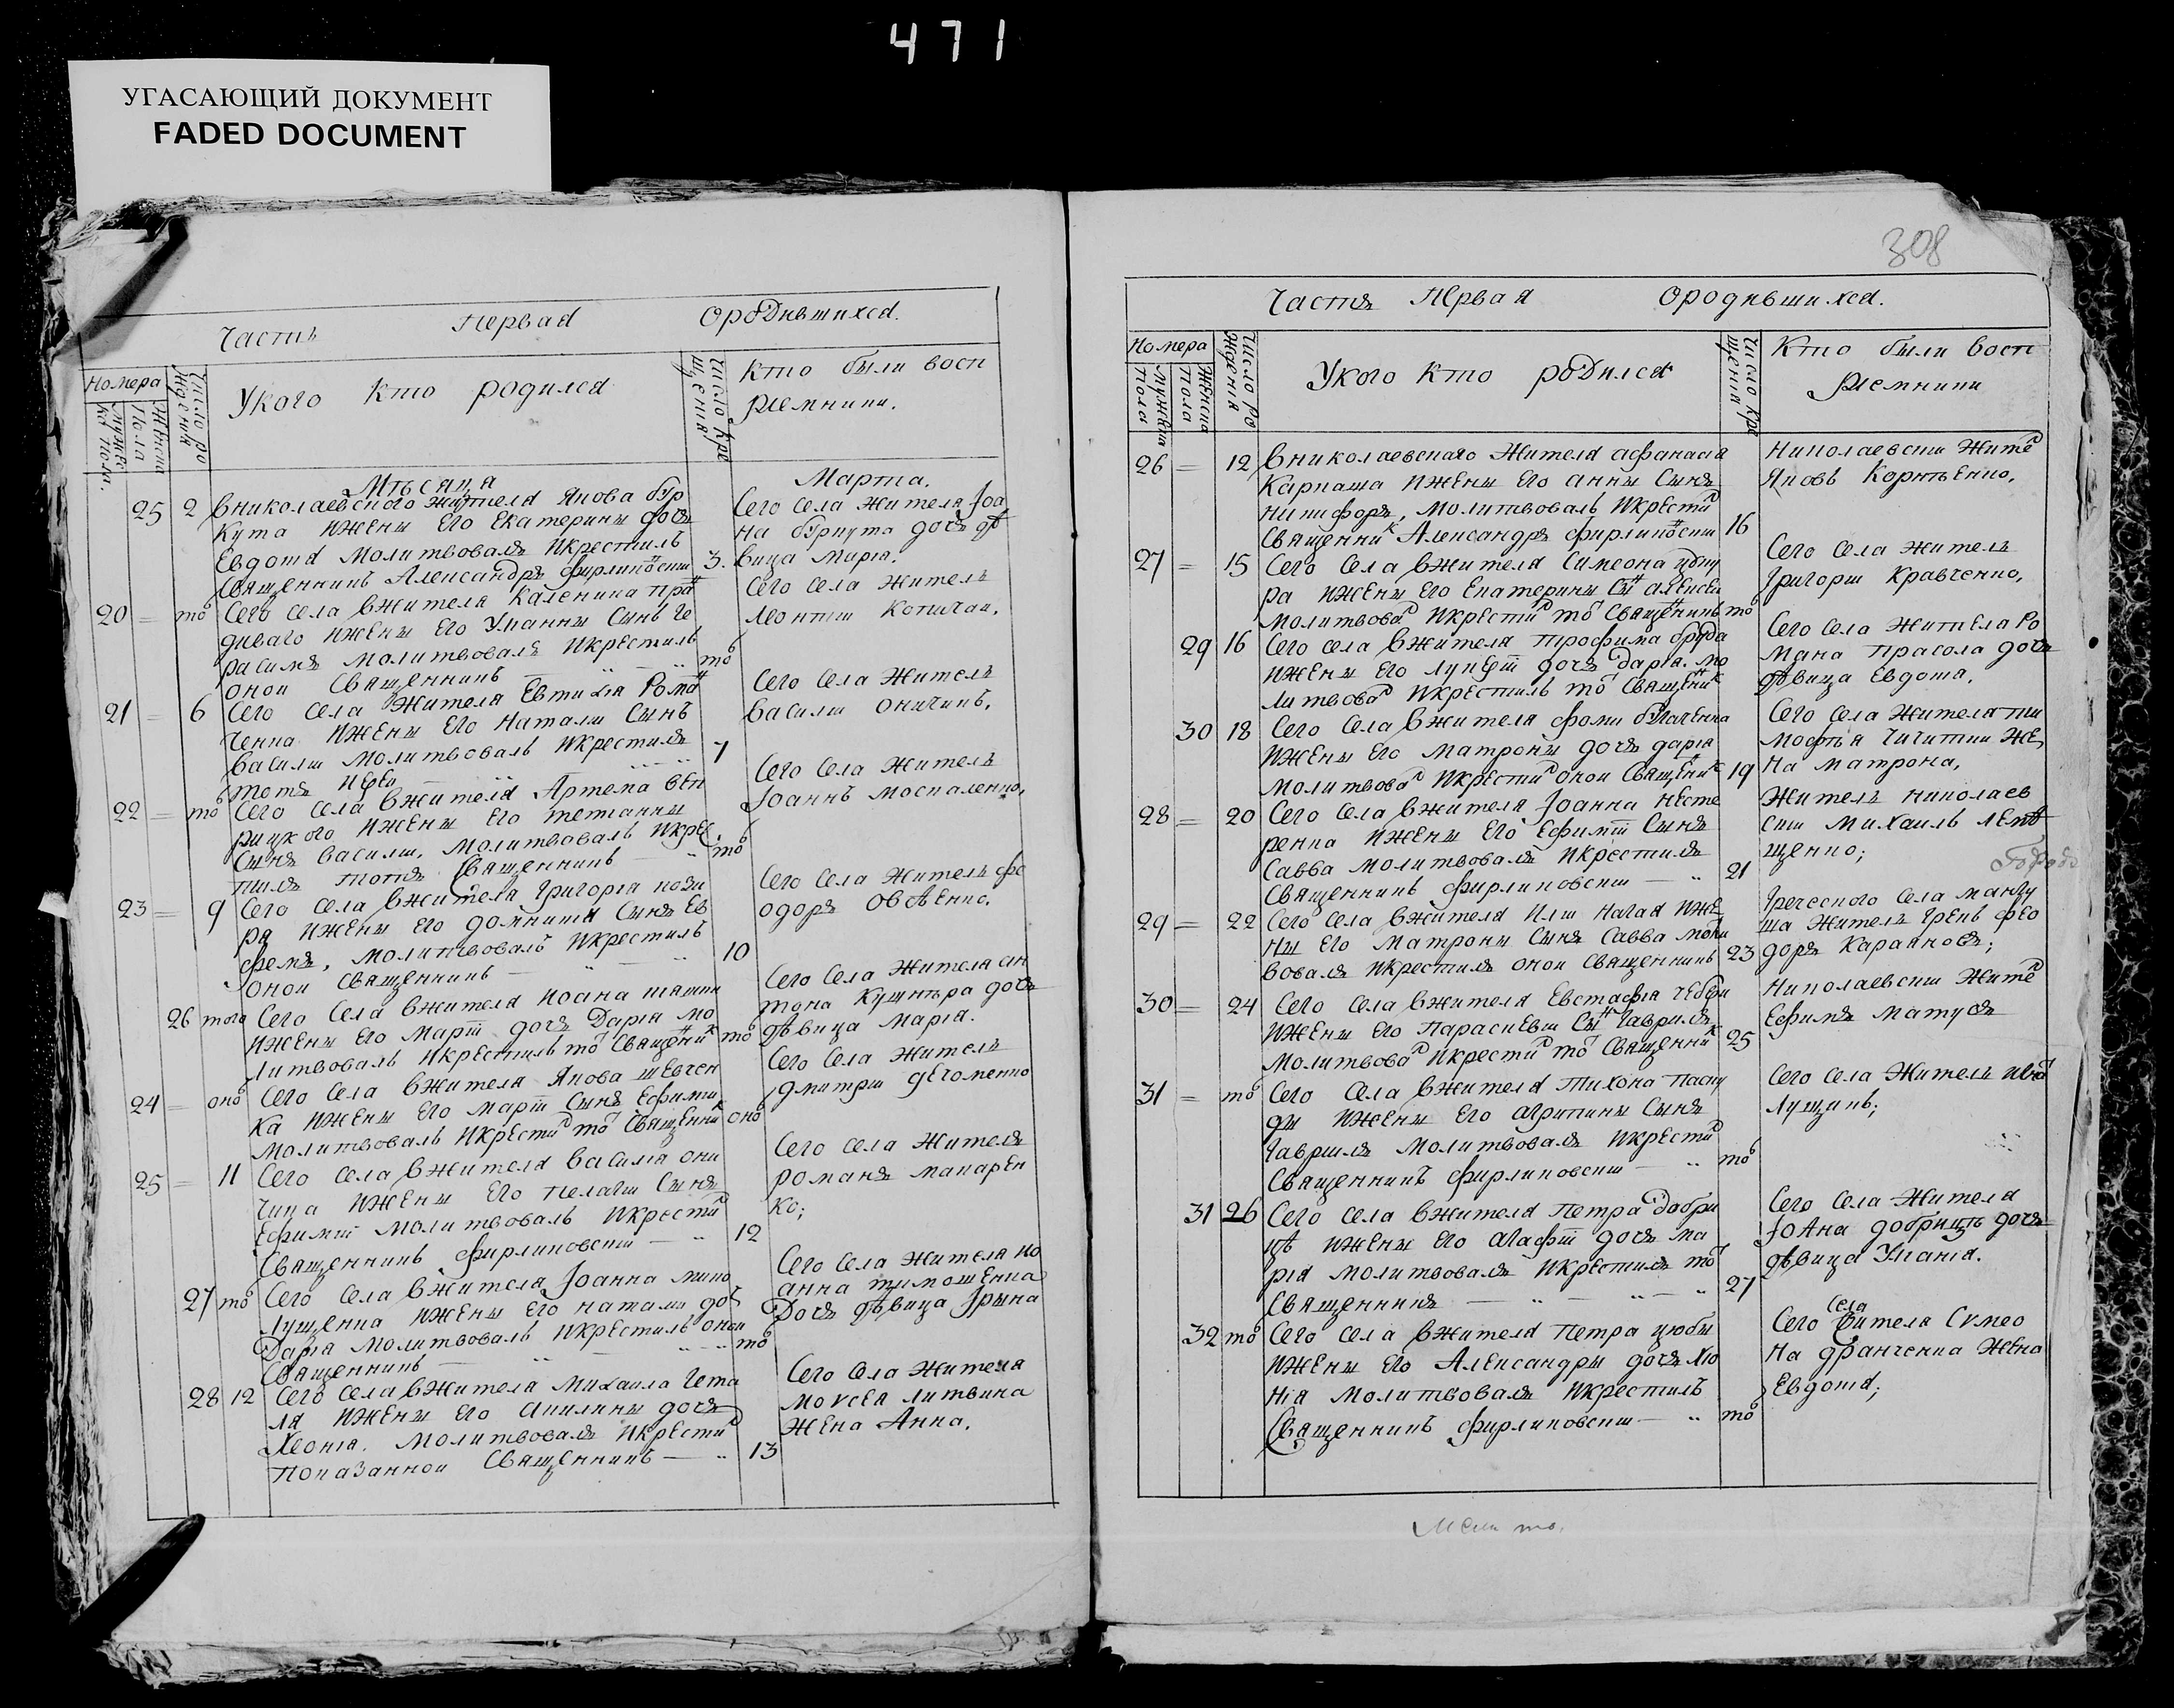 471
УГАСАЮЩИЙ ДОКУМЕНТ
FADED DOCUMENT
Часть Первая ОродИвшихся.
Номера
мужес
ка пола.
женска
Пола
число ро
жденія
Укого кто родился
число кре
щенія
кто были восп
рiемники.
Мѣсяца Марта.
25 2 Вниколаевского жителя Якова бур
кута ижены Его Екатерины дочь
Евдокія Молитвовалъ Икрестилъ
Священникъ Александръ фирлиповски 3.
Сего села жителя Іоа
на буркута дочь дѣ
вица Марія.
20 — то Сего села вжителя Каленика пра
диваго ижены Его Уліанны Сынъ Ге
расимъ молитвовалъ Икрестилъ
оной Священникъ — то
Сего села житель
Леонтій Копичай.
21 — 6 Сего села жителя Евтихія Рома
ченка ижены Его Наталіи Сынъ
Василій Молитвовалъ Икрестилъ
тотъ іерей 7
Сего села житель
Василій Оничикъ.
22 — то Сего села вжителя Артема вен
рицкого ижены Его тетянны
Сынъ Василій. Молитвовалъ Икрес
тилъ тотъ Священникъ — то
Сего села житель
Іоаннъ москаленко.
23 — 9 Сего села вжителя Григорія кози
ра ижены Его домникіи Сынъ Ев
фемъ, молитвовалъ Икрестилъ
оной Священникъ — 10
Сего села житель фе
одоръ Овсѣенко.
26 того Сего села вжителя Иоана шашки
ижены Его Марѳы дочь Дарія мо
литвовалъ Икрестилъ то Священик то
Сего села жителя ан
тона Кушнѣра дочь
дѣвица Марія.
24 — оно Сего села вжителя Якова шевчен
ка ижены Его Марѳы Сынъ Ефимій
молитвовалъ Икрести то Священик оно
Сего села житель
дмитрій дегоменко
25 — 11 Сего села вжителя Василія они
чика ижены Его пелагіи Сынъ
Ефимій молитвовалъ Икрести
Священникъ фирлиповскій — 12
Сего села житель
романъ макарен
ко;
27 то Сего села вжителя Іоанна мико
лущенка ижены его наталіи доч
Дарія Молитвовалъ Икрестилъ оной
Священникъ — то
Сего села жителя ио
анна тимошенка
Дочь дѣвица Ірына
28 12 Сего села вжителя михаила гета
ля ижены его Акилины дочь
Хеонія. Молитвовалъ Икрести
показанной Священникъ — 13
Сего села жителя
моусея литвина
жена Анна.
308
Часть Первая ОродИвшихся.
Номера
мужеска
пола
женска
пола
Число ро
жденія
Укого Кто родился
Число кре
щенія
Кто были восп
рiемники
26 = 12 Вниколаевскаго жителя афанасія
Карпаша ижены его анны Сынъ
никифоръ, молитвовалъ Икрести
Священик Александръ фирлиповски 16
Николаевски жите
Яковъ Корнѣенко.
27 = 15 Сего села вжителя Симеона
ра ижены его Екатерины Сы алексеи
молитвова Икрести то Священикъ то
Сего села житель
Григорій Кравченко,
29 16 Сего села вжителя трофима бруда
ижены его дочь дарія. мо
литвова Икрестилъ то Священик
Сего села жителя Ро
мана прасола дочь
дѣвица Евдокія.
30 18 Сего села вжителя фомы булаченка
ижены его матроны дочь дарія
молитвова Икрести оной Священик 19
Сего села жителя ти
мофѣя чичитки же
на матрона,
28 = 20 Сего села вжителя Іоанна несте
ренка ижены Его Ефиміи Сынъ
Савва молитвовалъ Икрестилъ
Священникъ фирлиповскій — 21
житель николаев
скій михаилъ лепѣ
щенко;
29 = 22 Сего села вжителя Иліи Нагая иже
ны Его матроны Сынъ Савва моли
вовалъ Икрестилъ оной Священникъ 23
Греческого села мангу
ша житель грекъ фео
доръ Караяновъ;
30 = 24 Сего села вжителя Евстафія
ижены Его Параскевіи Сы Гаврилъ
молитвова Икрести то Священник 25
Николаевски жите
Ефимъ матусъ
31 = то Сего села вжителя тихона паску
ды ижены Его агрипины Сынъ
Гавріилъ молитвовалъ Икрести
Священникъ фирлиповскій — то
Сего села житель ива
лущикъ;
31 26 Сего села вжителя Петра добри
цѣ ижены его агафіи дочь ма
рія молитвовалъ Икрестилъ то
Священникъ — 27
Сего села жителя
Іоана добрицѣ дочь
дѣвица Уліанія.
32 то Сего села вжителя Петра цюбы
ижены Его Александры дочь Хіо
нія молитвовалъ Икрестилъ
Священникъ фирлиповскій — то
Сего села жителя Сумео
на франченка жена
Евдокія;